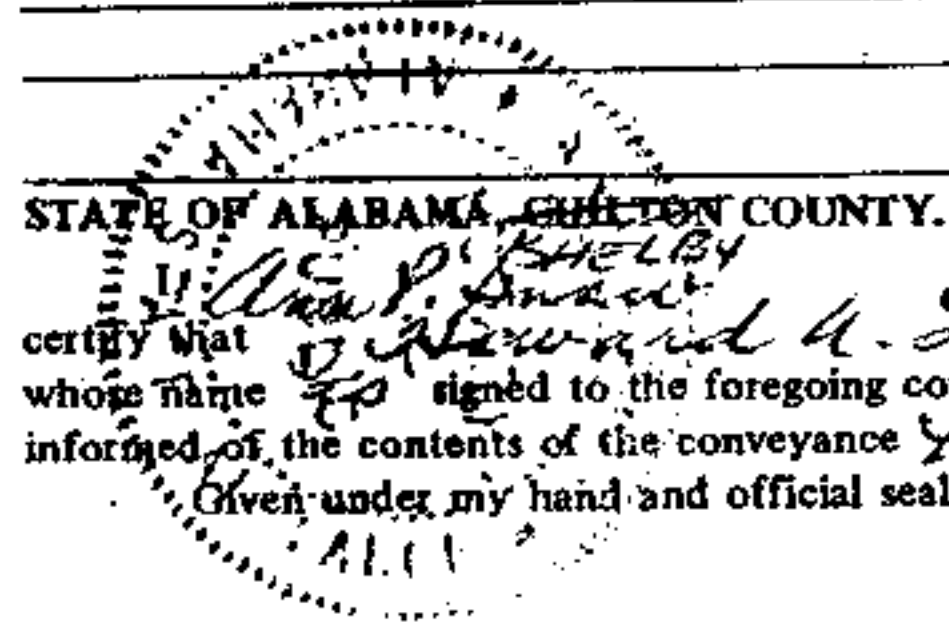 STATE OF ALABAMA, CHILTON COUNTY.
SHELBY
I, Ann P.
certify that Howard A.
whose name is signed to the foregoing co
informed of the contents of the conveyance
Given under my hand and official seal